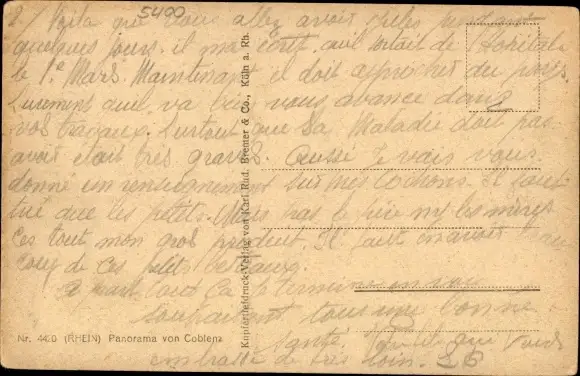 5490
2/ Voila que vous allez avoir Jules pendant
quelques jours. il m'a écrit qu'il sortait de l'Hopital
le 1e Mars. Maintenant il doit approcher du pays.
Surement qu'il va bien vous avancé dans
vos travaux. Surtout que sa Maladie doit pas
avoir était très grave. Aussi Je vais vous
donné un renseignement sur mes cochons. Il faut
tué que les petits. Mais pas le père ny les mères
Ces tout mon gros produit. Il faut
coup de ces petits
a part tout ça Je termine en vous
souhaitant tous une bonne
santé. que Vous
embrasse de très loin.
Kupfertiefdruck-Verlag von Karl Rud. Bremer & Co., Köln a. Rh.
Nr. 4420 (RHEIN) Panorama von Coblenz